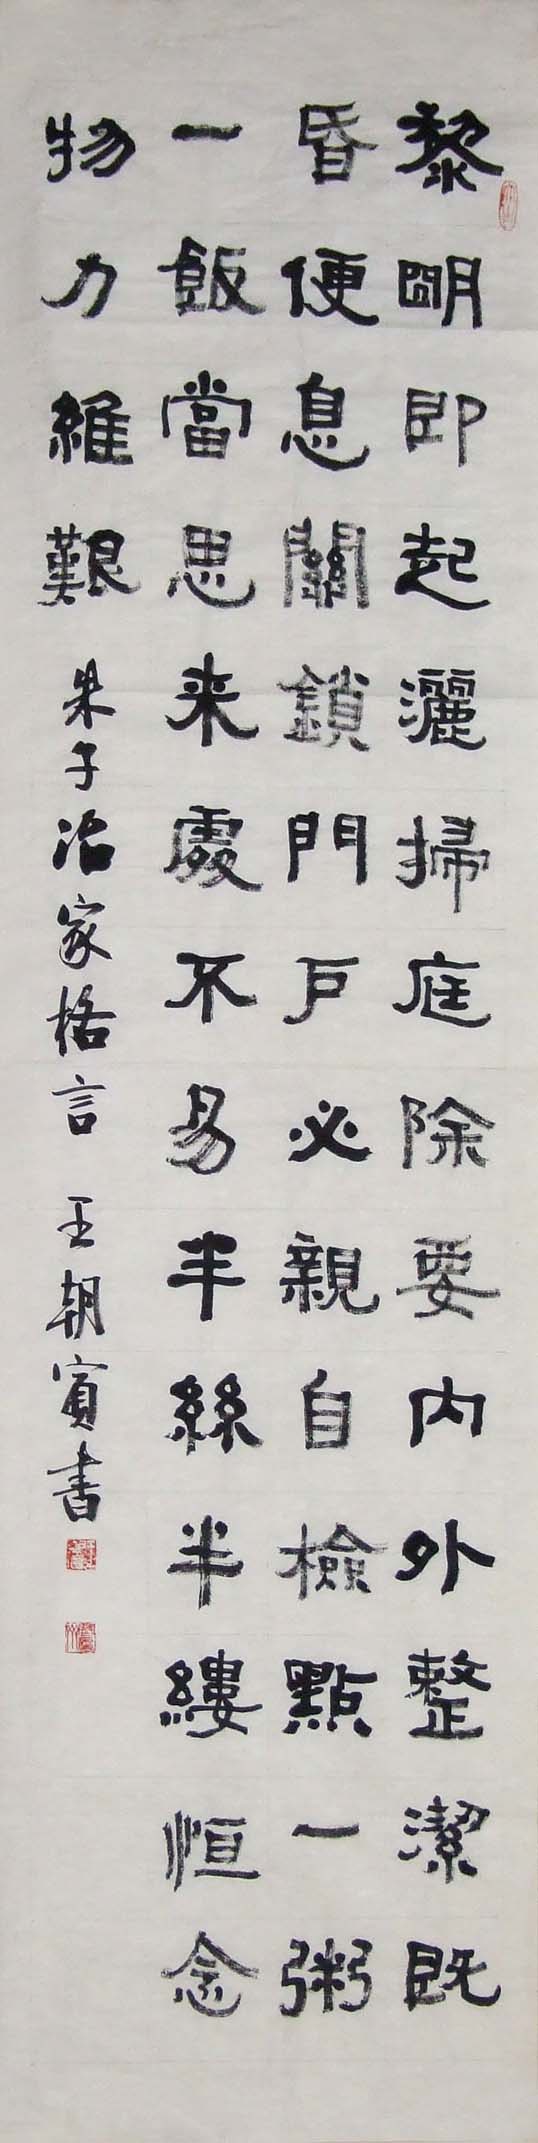 黎朙即起灑掃庭除要内外整潔既
昏便息關鎖門户必親自檢點一粥
一飯當思来處不易半絲半縷恒念
物力維艱 朱子治家格言 王朝賓書